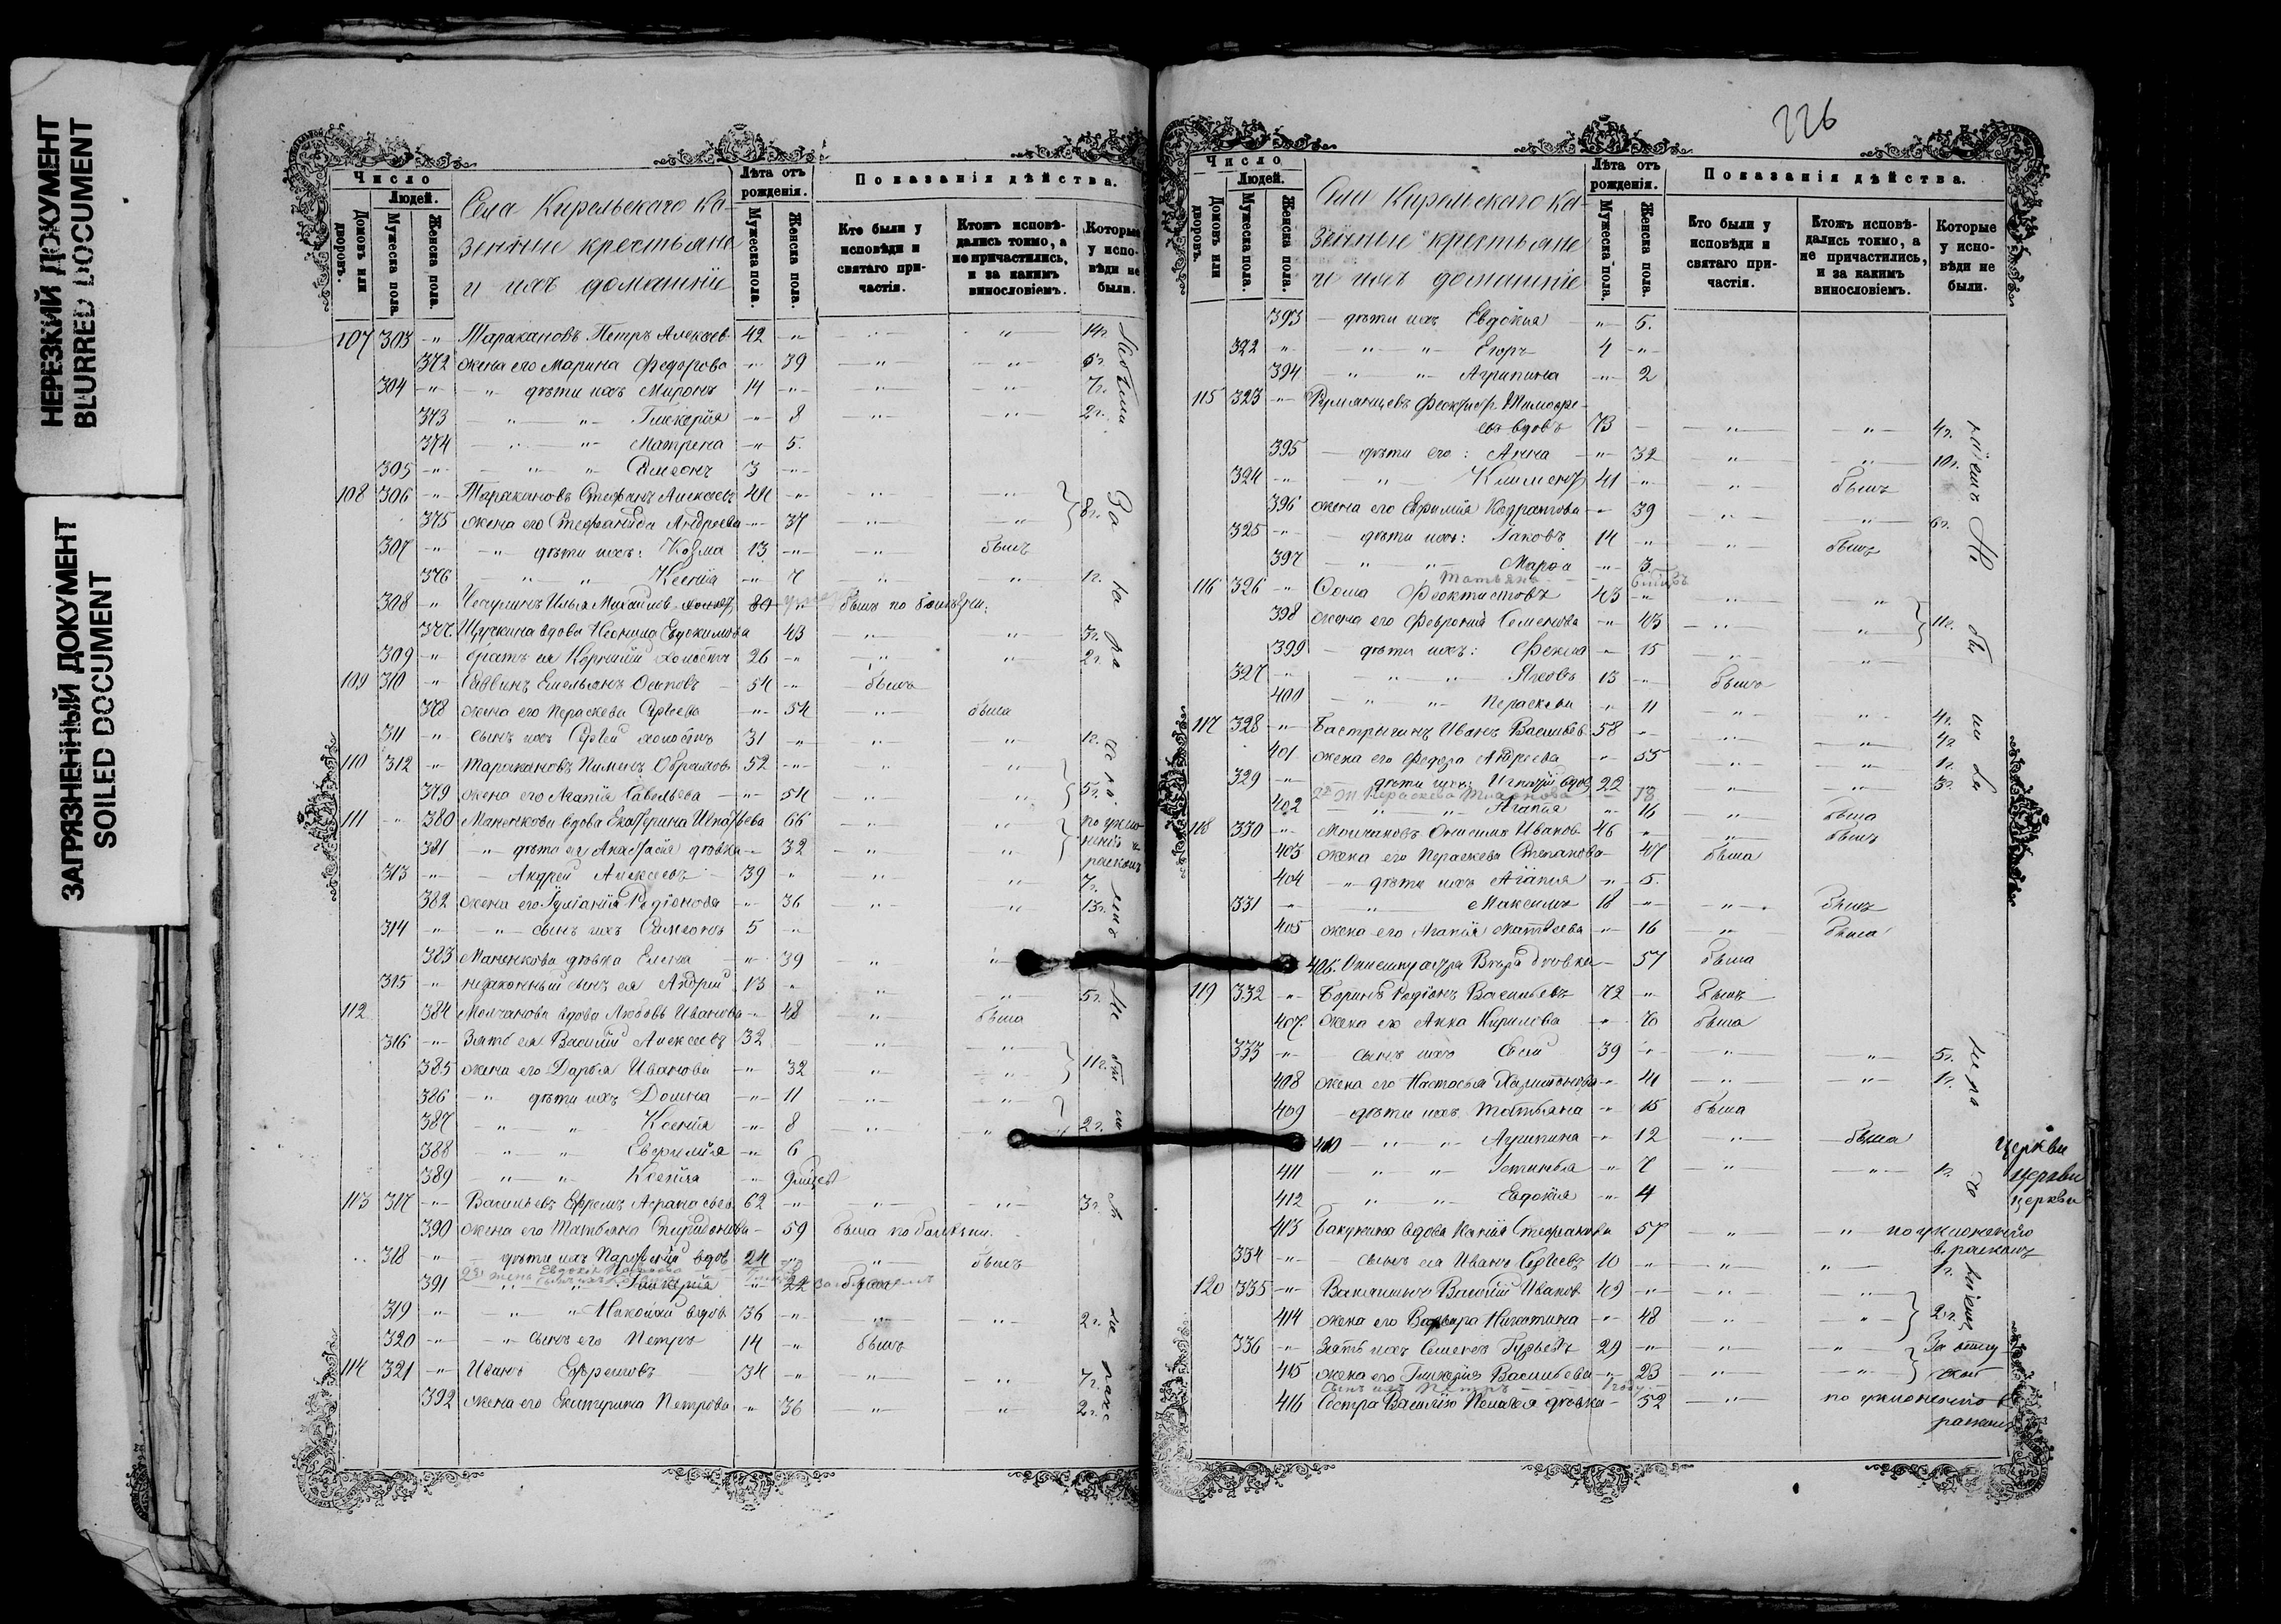 НЕРЕЗКИЙ ДОКУМЕНТ
BLURRED DOCUMENT
ЗАГРЯЗНЕННЫЙ ДОКУМЕНТ
SOILED DOCUMENT
Число
Людей.
Домовъ или дворовъ.
Мужеска пола.
Женска пола.
Села Кирельскаго ка-
зенные крестьяне
и ихъ домашніе
Лѣта отъ рожденія.
Мужеска пола.
Женска пола.
Показанія дѣйства.
Кто были у исповѣди и святаго причастія.
Ктожъ исповѣдались токмо, а не причастились, и за какимъ винословіемъ.
Которые у исповѣди не были.
107 303 -"- Таракановъ Петръ Алексѣев. 42 -"- -"- -"- 14 г.
372 жена его Марина Федорова -"- 39 -"- -"-
304 -"- -"- дѣти ихъ Миронъ 14 -"- -"- -"- 7 г.
373 -"- -"- Гликерія -"- 8 -"- -"- 2 г.
374 -"- -"- Матрена -"- 5.
305 -"- -"- -"- Симеонъ 3 -"-
108 306 -"- Таракановъ Стефанъ Алексѣевъ 44 -"- -"- -"-
375 жена его Стефанида Андреева -"- 37 -"- -"- 8 г.
307 -"- -"- дѣти ихъ: Козма 13 -"- -"- былъ
376 -"- -"- Ксенія -"- 7 -"- -"- 1 г.
308 -"- Илья Михаиловъ холостъ 80 -"- былъ по болѣзни.
377 Щучкина вдова Неонила Евдокимова 43 -"- -"- 3 г.
309 -"- братъ ея Корнилій холостъ 26 -"- -"- -"- 2 г.
109 310 -"- Саввинъ Емельянъ Осиповъ 54 -"- былъ
378 жена его Параскева Сергѣева -"- 54 -"- была
311 -"- сынъ ихъ Сергѣй холостъ 31 -"- -"- -"- 1 г.
110 312 -"- Таракановъ Пименъ Обрамов. 52 -"- -"- -"-
379 жена его Агапія Савельева -"- 54 -"- -"- 5 г.
111 -"- 380 Маненкова вдова Екатерина Игнатьева 66 -"- -"- по укло-
381 -"- дѣти ея Анастасія дѣвка -"- 32 -"- -"- ненію въ расколъ
313 -"- Андрей Алексѣевъ 39 -"- -"- -"- 7 г.
382 жена его Іуліанія Родіонова -"- 36 -"- -"- 13 г.
314 -"- -"- сынъ ихъ Симеонъ 5 -"-
383 Маненкова дѣвка Елена -"- 39 -"- -"-
315 -"- незаконный сынъ ея Андрей 13 -"- -"- -"- 5 г.
112 384 Молчанова вдова Любовь Иванова -"- 48 -"- была
316 -"- Зять ея Василій Алексѣевъ 32 -"- -"-
385 жена его Дарья Иванова -"- 32 -"- -"- 11 г.
386 -"- дѣти ихъ Домна -"- 11 -"- -"-
387 -"- -"- Ксенія -"- 8 -"- -"- 2 г.
388 -"- -"- Евфимія -"- 6
389 -"- -"- Ксенія -"-
113 317 -"- Васильевъ Ефремъ Афанасьев. 62 -"- -"- -"- 3 г.
390 жена его Татьяна Спиридонова 59 была по болѣзни.
318 -"- дѣти ихъ вдов. 24 -"- -"- былъ
391 -"- -"- Гликерія -"- 22
319 -"- -"- -"- Николай вдов. 36 -"- -"- -"- 2 г.
320 -"- -"- сынъ его Петръ 14 -"- былъ
114 321 -"- Иванъ Ефремовъ 34 -"- -"- -"- 7 г.
392 жена его Екатерина Петрова -"- 36 -"- -"- 2 г.
226
Число
Людей.
Домовъ или дворовъ.
Мужеска пола.
Женска пола.
Села Кирельскаго ка-
зенные крестьяне
и ихъ домашніе
Лѣта отъ рожденія.
Мужеска пола.
Женска пола.
Показанія дѣйства.
Кто были у исповѣди и святаго причастія.
Ктожъ исповѣдались токмо, а не причастились, и за какимъ винословіемъ.
Которые у исповѣди не были.
393 дѣти ихъ Евдокія -"- 5.
322 -"- -"- -"- Егоръ 4 -"-
394 -"- -"- Агрипина -"- 2
115 323 -"- Румянцевъ Феоктист Тимофе-
евъ вдовъ 73 -"- -"- 4 г.
395 дѣти его: Анна -"- 32 -"- -"- 10 г.
324 -"- -"- Климентъ 41 -"- -"- былъ
396 жена его Евфимія Кодратова -"- 39 -"- -"- 6 г.
325 -"- дѣти ихъ: Іаковъ 14 -"- -"- былъ
397 -"- -"- Марѳа -"- 3
Татьяна
116 326 -"- Ѳома Феоктистовъ 43 -"- -"- -"-
398 жена его Февронія Семенова -"- 43 -"- -"- 11 г.
399 дѣти ихъ: Фекла -"- 15 -"- -"-
327 -"- -"- -"- Яковъ 13 -"- былъ
400 -"- -"- Параскева -"- 11 -"- -"-
117 328 -"- Бастрыгинъ Иванъ Васильев. 58 -"- -"- -"- 4 г.
401 жена его Федора Андреева -"- 55 -"- -"- 1 г.
329 -"- дѣти ихъ: Игнатій вдов. 22 -"- -"- -"- 3 г.
402 -"- -"- Агапія -"- 16 -"- была
118 330 -"- Молчановъ Онисимъ Иванов. 46 -"- -"- былъ
403 жена его Параскева Степанова 47 была
404 -"- дѣти ихъ Агапія -"- 5.
331 -"- -"- Максимъ 18 -"- -"- былъ
405 жена его Агапія Матвѣева -"- 16 -"- была
406. Онисиму сестра Вѣра дѣвка 57 была
119 332 -"- Боринъ Родіонъ Васильевъ 72 -"- былъ
407. жена его Анна Кирилова -"- 70 была
333 -"- сынъ ихъ 39 -"- -"- -"- 5 г.
408 жена его Настасья Харитонова -"- 41 -"- -"- 1 г.
409 дѣти ихъ Татьяна -"- 15 была
410 -"- -"- Агрипина -"- 12 -"- была
411 -"- -"- Устинья -"- 7 -"- -"- 1 г.
412 -"- -"- Евдокія -"- 4
церкви
церкви
церкви
413 Бакунина вдова Ксенія Стефанова 57 -"- -"- по уклоненію
въ расколъ
334 -"- сынъ ея Иванъ Сергѣевъ 10 -"- -"- -"- 1 г.
120 335 -"- Василій Иванов 49 -"- -"- -"-
414 жена его Варвара Никитина -"- 48 -"- -"- 2 г.
336 -"- Зять ихъ Семенъ Гурьевъ 29 -"- -"- -"- За отлу-
415 жена его Гликерія Васильева -"- 23 -"- -"- кой
сынъ ихъ Петръ
416 Сестра Василію Пелагея дѣвка 52 -"- по уклоненію въ
расколъ